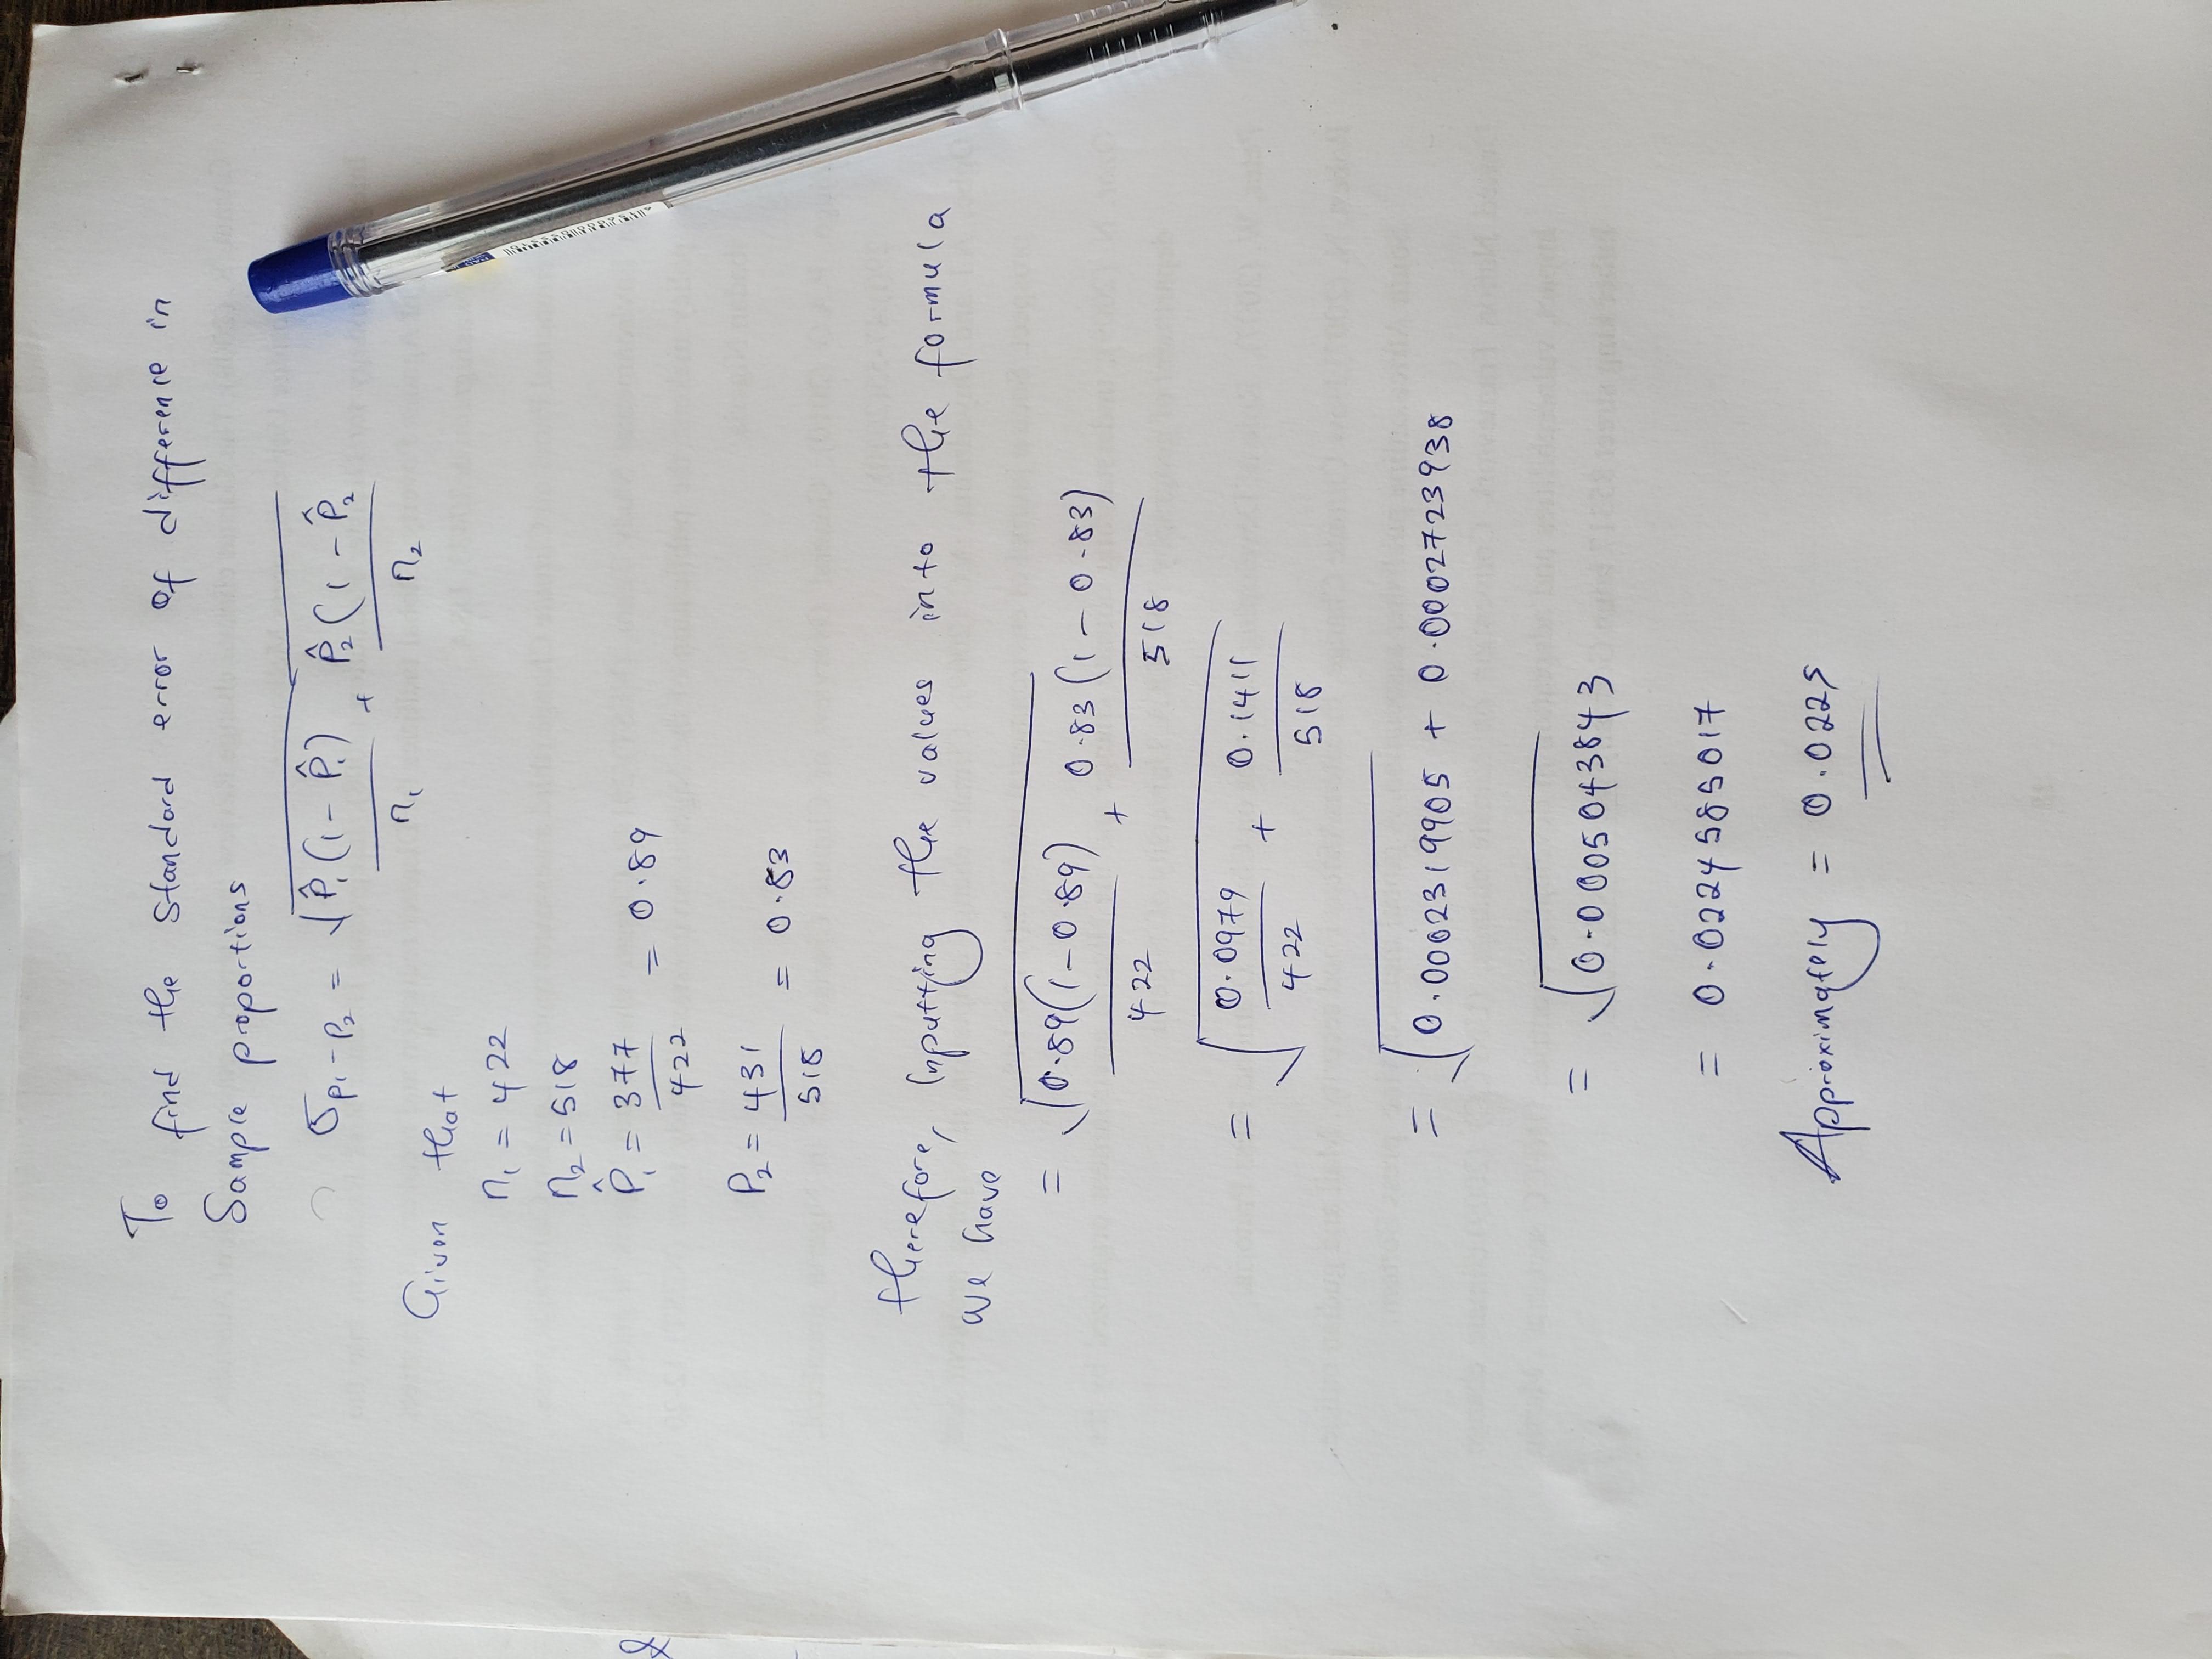 To find the Standard error of difference in
Sample proportions
σ p₁-p₂ = √ P̂₁(1-P̂₁)/n₁ + P̂₂(1-P̂₂/n₂
Given that
n₁ = 422
n₂ = 518
P̂₁ = 377/422 = 0.89
P₂ = 431/518 = 0.83
therefore, inputting the values into the formula
we have
= √ 0.89(1-0.89)/422 + 0.83(1-0.83)/518
= √ 0.0979/422 + 0.1411/518
= √ 0.0002319905 + 0.0002723938
= √ 0.0005043843
= 0.0224585017
Approximately = 0.0225